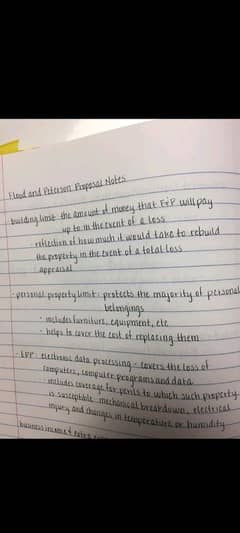 Flood and Peterson Proposal Notes
- building limit: the amount of money that F&P will pay
up to in the event of a loss
- reflection of how much it would take to rebuild
the property in the event of a total loss
appraisal
- personal property limit: protects the majority of personal
belongings
- includes furniture, equipment, etc.
- helps to cover the cost of replacing them
- EPP: electronic data processing - covers the loss of
computers, computer programs and data
- includes coverage for perils to which such property
is susceptible: mechanical breakdown, electrical
injury, and changes in temperature or humidity
business income &